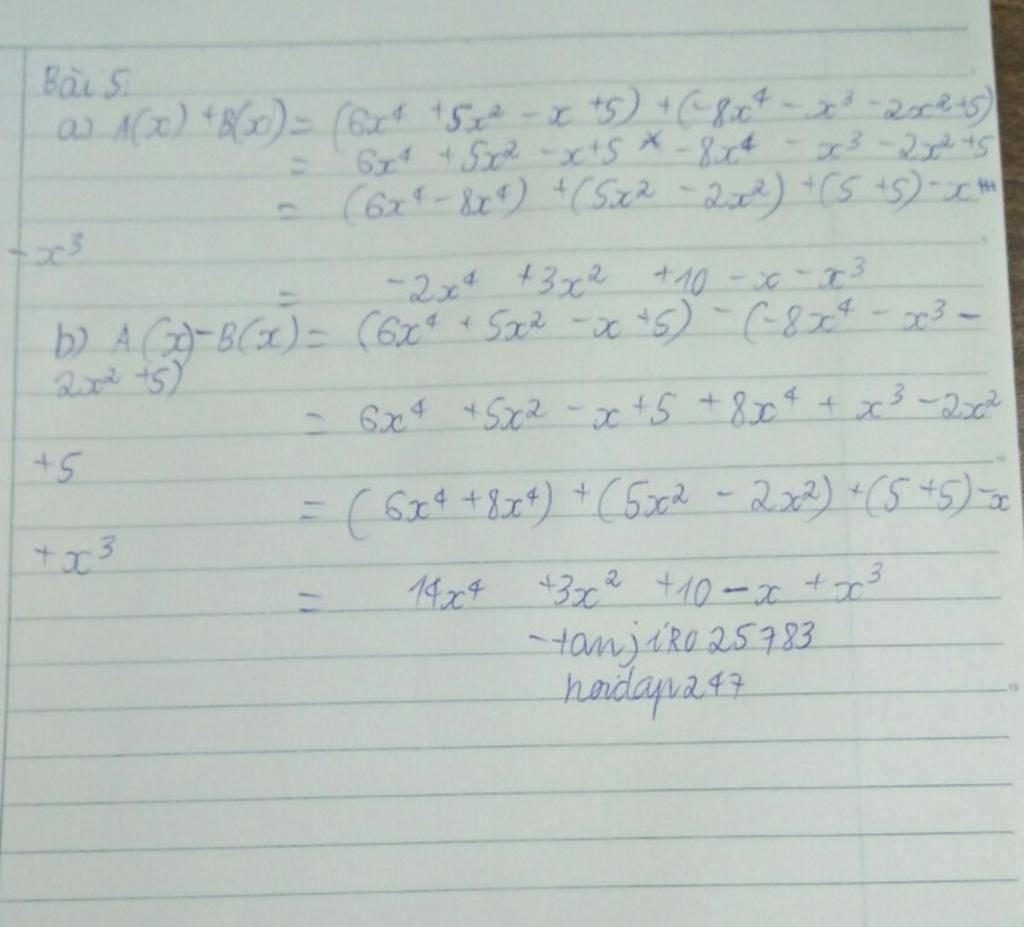 Bài 5:
a) A(x) + B(x) = (6x⁴ + 5x² - x + 5) + (-8x⁴ - x³ - 2x² + 5)
= 6x⁴ + 5x² - x + 5 - 8x⁴ - x³ - 2x² + 5
= (6x⁴ - 8x⁴) + (5x² - 2x²) + (5 + 5) - x
- x³
= -2x⁴ + 3x² + 10 - x - x³
b) A(x) - B(x) = (6x⁴ + 5x² - x + 5) - (-8x⁴ - x³ -
2x² + 5)
= 6x⁴ + 5x² - x + 5 + 8x⁴ + x³ - 2x²
+ 5
= (6x⁴ + 8x⁴) + (5x² - 2x²) + (5 + 5) - x
+ x³
= 14x⁴ + 3x² + 10 - x + x³
-tanjiro25783
hoidap247